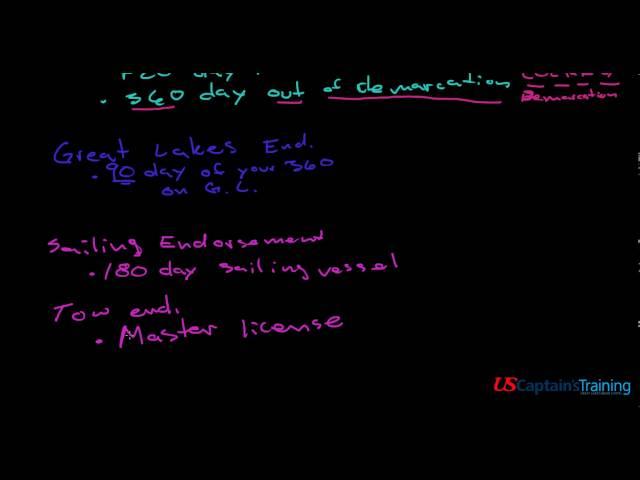 720 day
• 360 day out of demarcation
Demarcation
Great Lakes End.
• 90 day of your 360
on G.L.
Sailing Endorsement
• 180 day sailing vessel
Tow end.
• Master license
USCaptain'sTraining